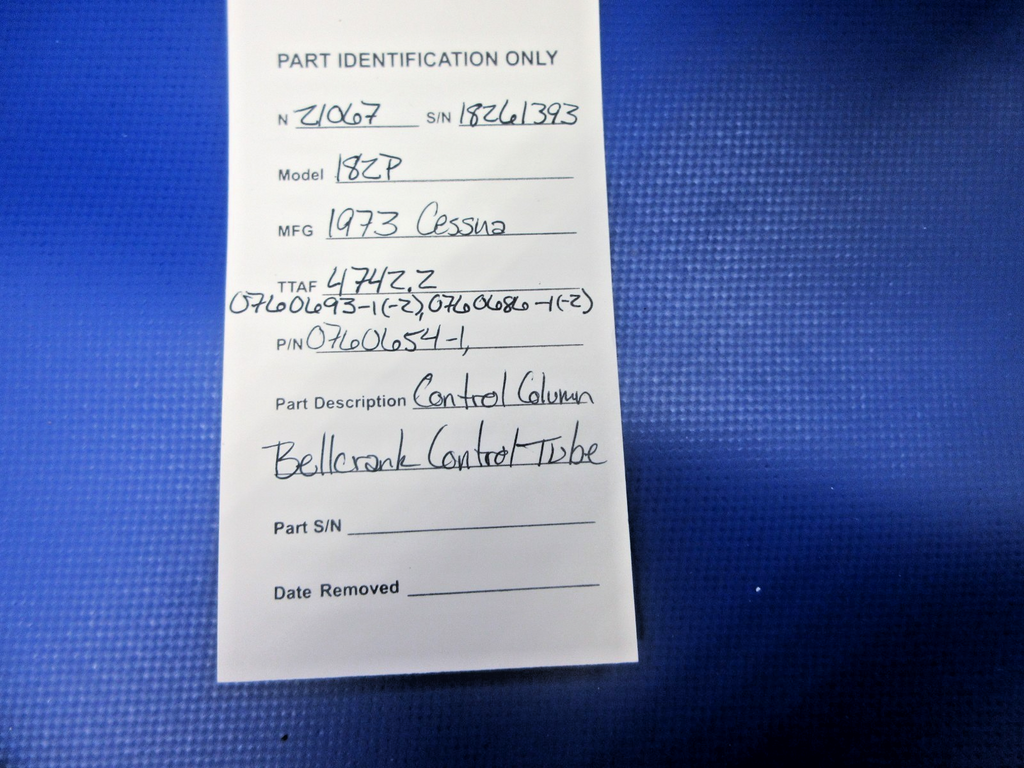 PART IDENTIFICATION ONLY
N 21067 S/N 18261393
Model 182P
MFG 1973 Cessna
TTAF 4742.2
0760693-1(-2), 0760686-1(-2)
P/N 0760654-1,
Part Description Control Column
Bellcrank Control Tube
Part S/N
Date Removed